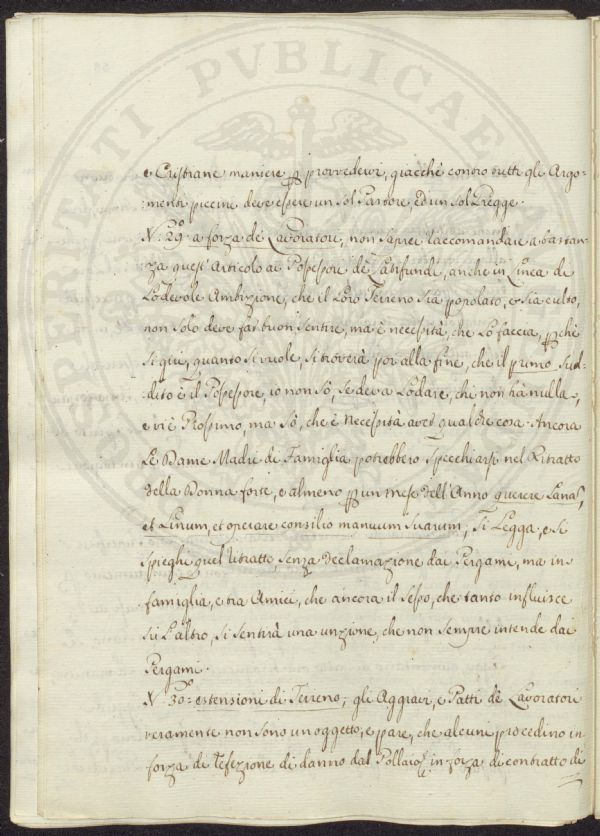 PROSPERITATI PVBLICAE
e Cristiane maniere p provvedervi, giacchè contro tutti gli Argo=
menti piccini deve essere un sol Pastore, ed un sol Gregge.
N: 29.º a forza de' Lavoratori, non saprei raccomandare a bastan=
za quest'Articolo ai Possessori de' Latifundi, anche in Linea di
Lodevole Ambizione, che il Loro Terreno sia popolato, e sia culto,
non solo deve far buon sentire, ma è necessità, che Lo faccia, pchè
si giri, quanto si vuole, si troverà poi alla fine, che il primo Sud=
dito è il Possessore, io non sò, se deva Lodare, chi non hà nulla,
e vi è Prossimo, ma sò, che è necessità aver qualche cosa. Ancora
Le Dame Madri di Famiglia potrebbero specchiarsi nel Ritratto
della Donna forte, e almeno p un mese dell'Anno querere Lanã,
et Linum, et operare consilio manuum suarum; Si Legga, e si
spieghi quel Ritratto, senza declamazione dai Pergami, ma in
famiglia, e tra Amici, che ancora il sesso, che tanto influisce
su L'altro, si sentirà una unzione, che non sempre intende dai
Pergami.
N: 30.º estensioni di Terreno; gli Aggravi, e Patti de' Lavoratori
veramente non sono un oggetto, e pare, che alcuni procedino in
forza di refezione di danno dal Pollaio, in forza di contratto di